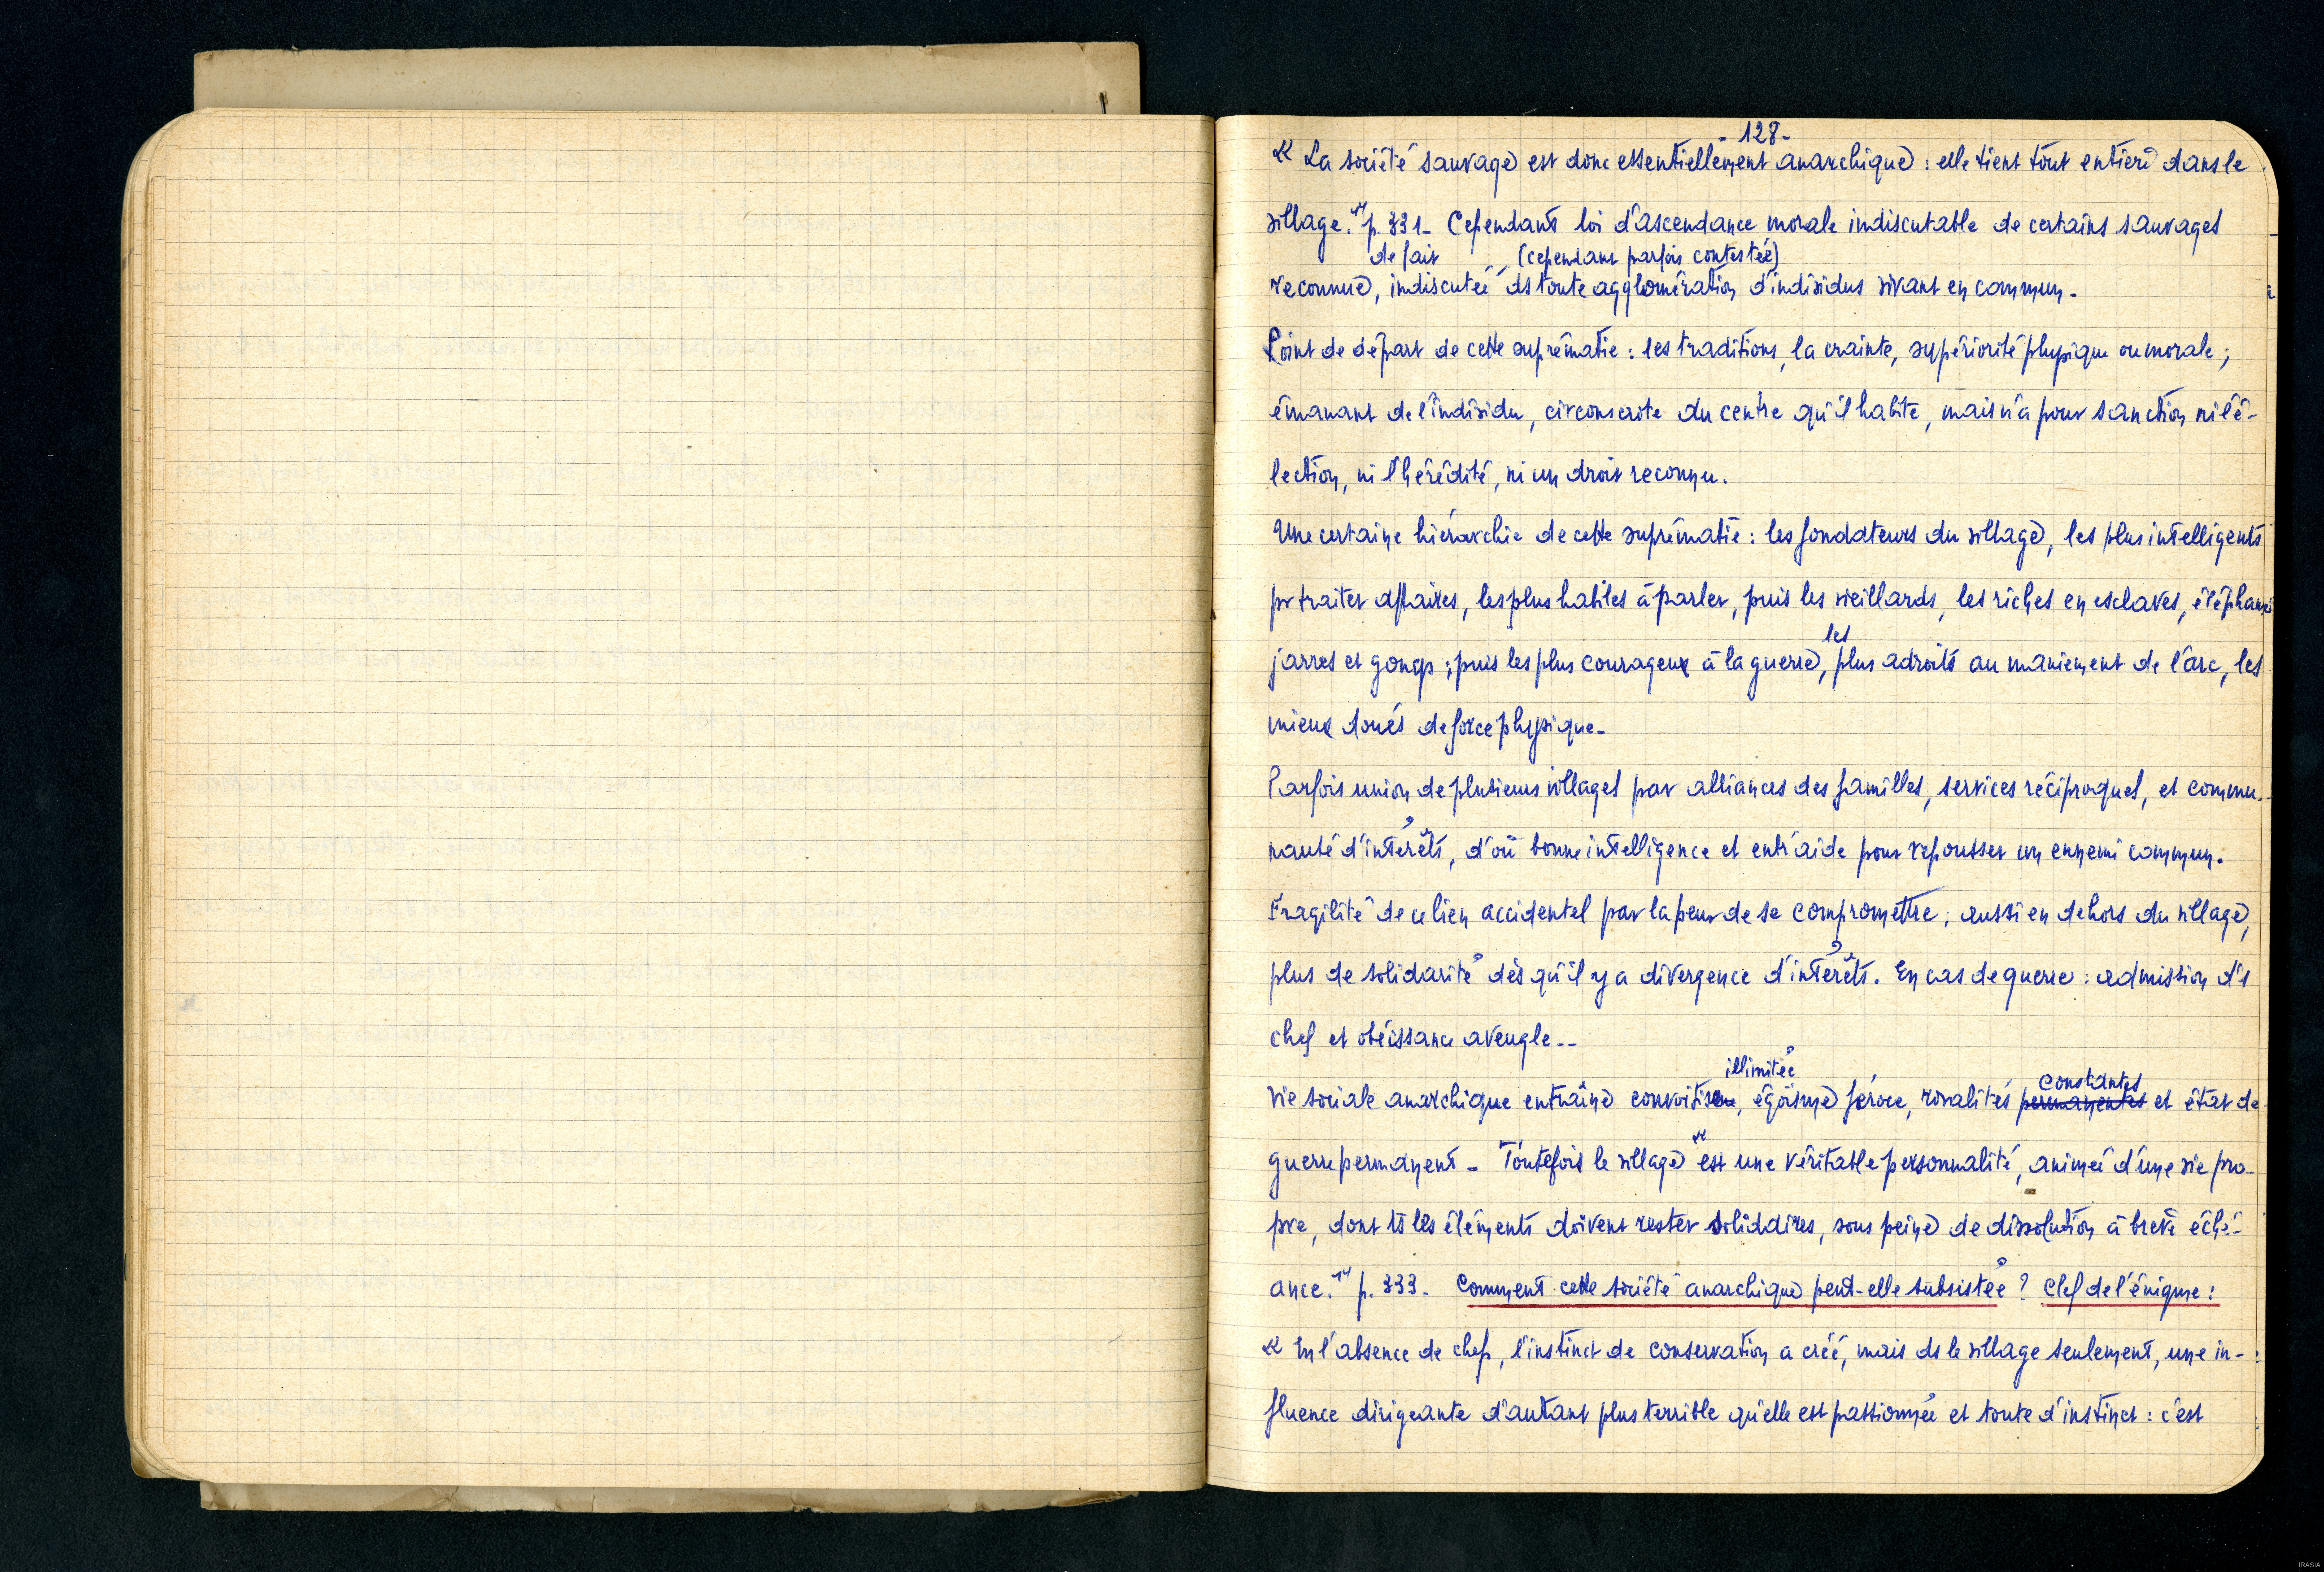 - 128 -
« La société sauvage est donc essentiellement anarchique : elle tient tout entière dans le
village." p. 331 - Cependant loi d'ascendance morale indiscutable de certains sauvages
de fait (cependant parfois contestée)
reconnue, indiscutée ds toute agglomération d'individus vivant en commun.
Point de départ de cette suprématie : les traditions, la crainte, supériorité physique ou morale ;
émanant de l'individu, circonscrite du centre qu'il habite, mais n'a pour sanction ni l'é-
lection, ni l'hérédité, ni un droit reconnu.
Une certaine hiérarchie de cette suprématie : les fondateurs du village, les plus intelligents
pr traiter affaires, les plus habiles à parler, puis les vieillards, les riches en esclaves, éléphants
les
jarres et gongs ; puis les plus courageux à la guerre, plus adroits au maniement de l'arc, les
mieux doués de force physique.
Parfois union de plusieurs villages par alliances des familles, services réciproques, et commu-
nauté d'intérêts, d'où bonne intelligence et entr'aide pour repousser un ennemi commun.
Fragilité de ce lien accidentel par la peur de se compromettre ; aussi en dehors du village,
plus de solidarité dès qu'il y a divergence d'intérêts. En cas de guerre : admission d's
chef et obéissance aveugle --
illimitée
constantes
Vie sociale anarchique entraîne convoitise, égoïsme féroce, rivalités permanentes et état de
guerre permanent - Toutefois le village "est une véritable personnalité, animée d'une vie pro-
pre, dont ts les éléments doivent rester solidaires, sous peine de dissolution à brève éché-
ance." p. 333 - Comment cette société anarchique peut-elle subsistée ? Clef de l'énigme :
« En l'absence de chef, l'instinct de conservation a créé, mais ds le village seulement, une in-
fluence dirigeante d'autant plus terrible qu'elle est passionnée et toute d'instinct : c'est
IRASIA